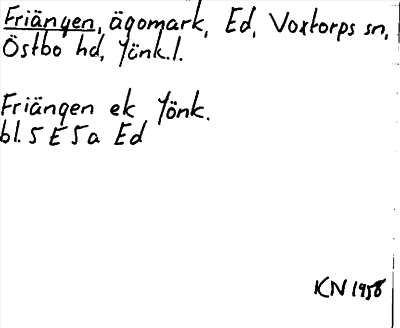 Friängen, ägomark, Ed, Voxtorps sn,
Östbo hd, Jönk.l.
Friängen ek Jönk.
bl. 5 E 5a Ed
KN 1958